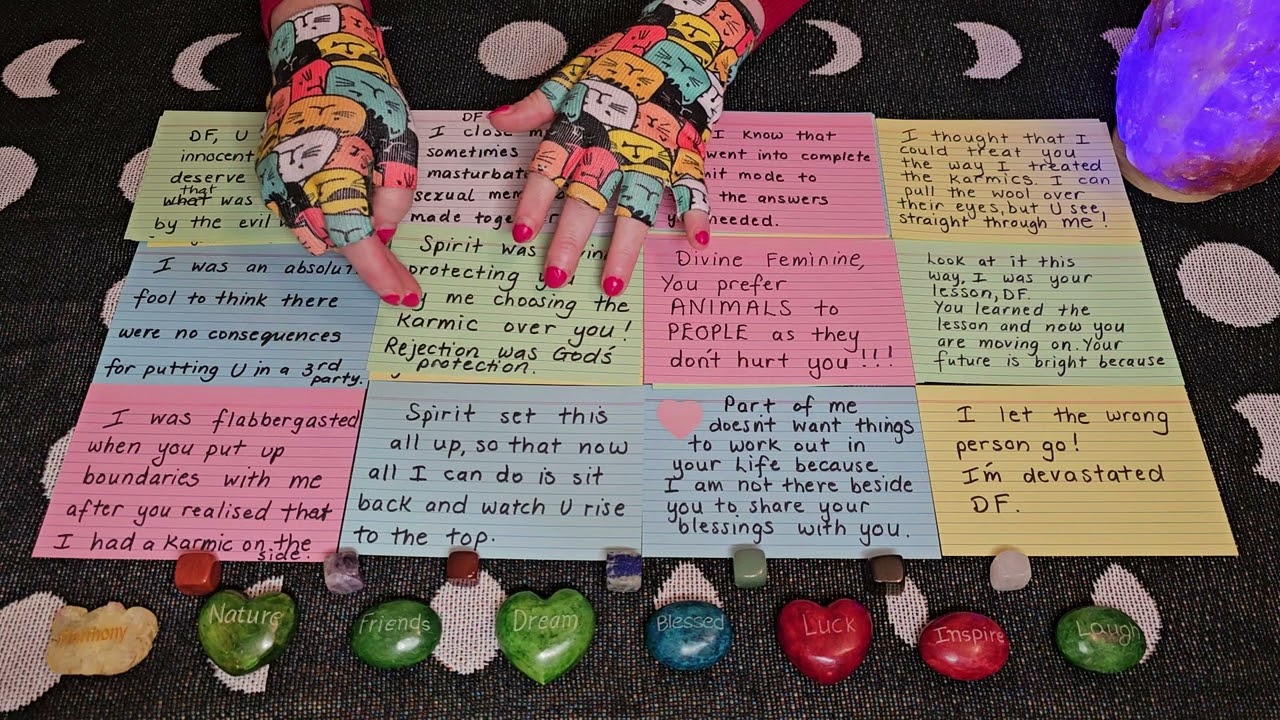 DF, U
innocent
deserve
that
what was
by the evil
DF
I close
sometimes
masturbate
sexual mem
made toge
I know that
went into complete
mode to
the answers
needed.
I thought that I
could treat you
the way I treated
the Karmics. I can
pull the wool over
their eyes, but U see,
straight through me!
I was an absolut
fool to think there
were no consequences
for putting U in a 3rd
party.
Spirit was
protecting
me choosing the
Karmic over you!
Rejection was God's
protection.
Divine Feminine,
You prefer
ANIMALS to
PEOPLE as they
don't hurt you!!!
Look at it this
way, I was your
lesson, DF.
You learned the
lesson and now you
are moving on. Your
future is bright because
I was flabbergasted
when you put up
boundaries with me
after you realised that
I had a Karmic on the
side.
Spirit set this
all up, so that now
all I can do is sit
back and watch U rise
to the top.
Part of me
doesnt want things
to work out in
your Life because
I am not there beside
you to share your
blessings with you.
I let the wrong
person go!
I'm devastated
DF.
Harmony
Nature
Friends
Dream
Blessed
Luck
Inspire
Laugh